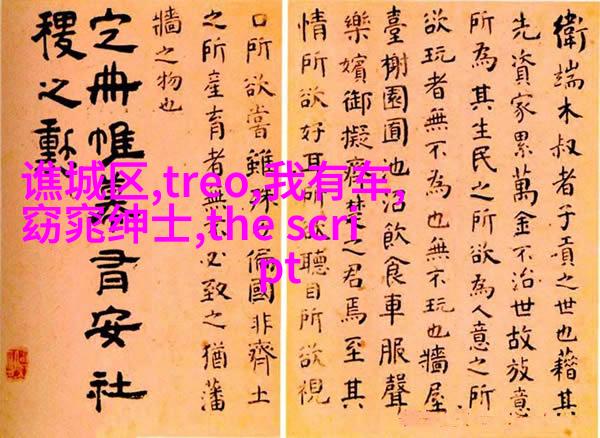 衛端木叔者子貢之世也藉其
先資家累萬金不治世故放意
所為其生民之所欲為人意之所
欲玩者無不為也無不玩也牆屋
臺榭園囿池沼飲食車服聲
樂嬪御擬齊楚之君焉至其
情所欲好耳所欲聽目所欲視
口所欲嘗雖殊方偏國非齊土
之所産育者無不必致之猶藩
牆之物也
定冊帷幕有安社
稷之勳
谯城区,treo,我有车,
窈窕绅士,the scri
pt